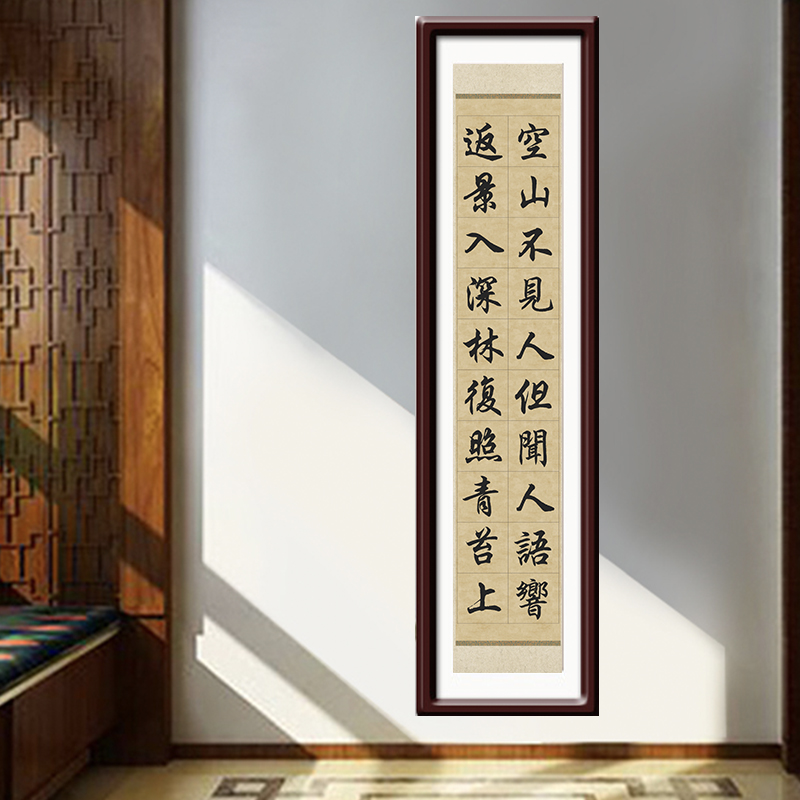 空山不見人但聞人語響
返景入深林復照青苔上